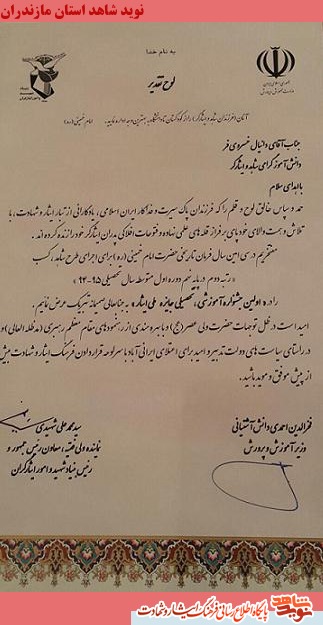 نوید شاهد استان مازندران
به نام خدا
لوح تقدیر
امام خمینی (ره)
جناب آقای دانیال خسروی فر
دانش آموز گرامی شاهد و ایثارگر
با اهدای سلام
حمد و سپاس خالق لوح و قلم را که فرزندان پاک سیرت و فداکار ایران اسلامی، یادگارانی از تبار ایثار و شهادت، با
تلاش و همت والای خود پای بر فراز قله های علمی نهاده و فتوحات افلاکی پدران ایثارگر خود را زنده کرده اند.
مفتخریم در سی امین سال فرمان تاریخی حضرت امام خمینی (ره) برای اجرای طرح شاهد، کسب
«رتبه دوم در پایه نهم دوره اول متوسطه سال تحصیلی ۹۵-۹۴»
را در «اولین جشنواره آموزشی، تحصیلی جایزه ملی ایثار» به جنابعالی صمیمانه تبریک عرض نمایم.
امید است در ظل توجهات حضرت ولی عصر (عج) و با بهره مندی از رهنمودهای مقام معظم رهبری (مدظله العالی) و
در راستای سیاست های دولت تدبیر و امید برای اعتلای ایرانی آباد با سرلوحه قرار دادن فرهنگ ایثار و شهادت بیش
از پیش موفق و موید باشید.
فخرالدین احمدی دانش آشتیانی
وزیر آموزش و پرورش
سید محمد علی شهیدی
نماینده ولی فقیه، معاون رئیس جمهور و
رئیس بنیاد شهید و امور ایثارگران
نوید شاهد پایگاه اطلاع رسانی فرهنگ ایثار و شهادت